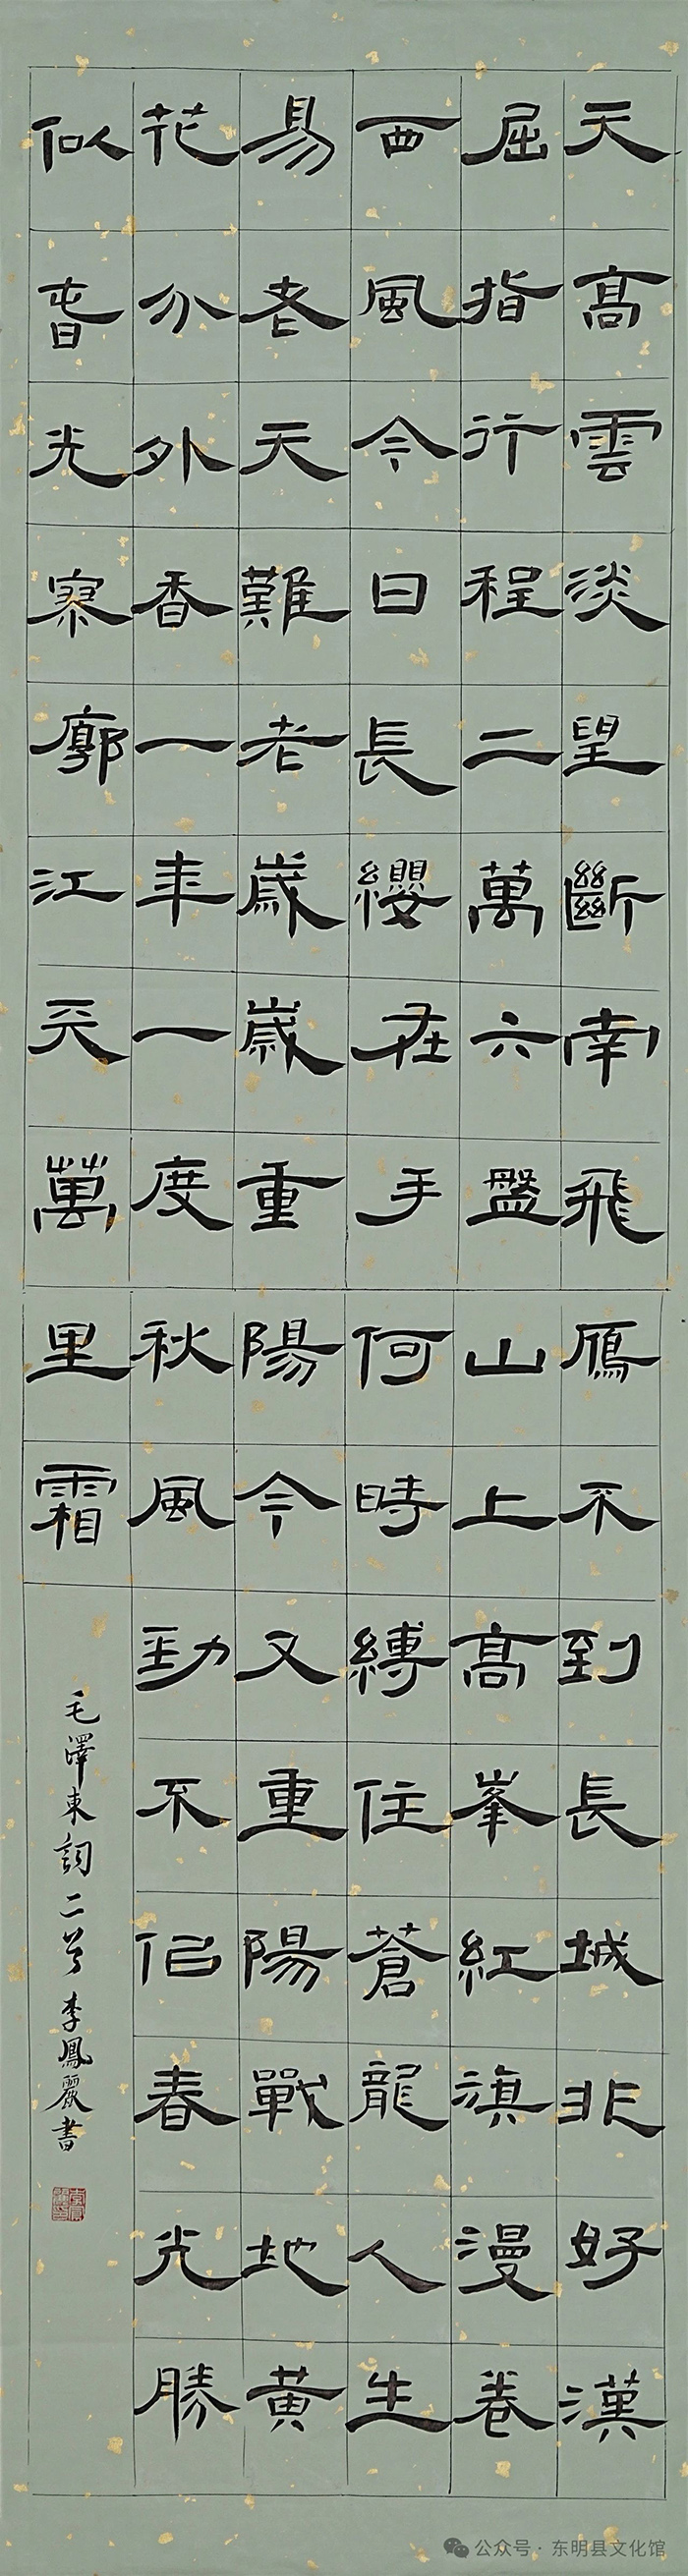 天高雲淡望斷南飛鴈不到長城非好漢
屈指行程二萬六盤山上高峯紅旗漫卷
西風今日長纓在手何時縛住蒼龍人生
易老天難老歲歲重陽今又重陽戰地黄
花分外香一年一度秋風勁不似春光勝
似春光寥廓江天萬里霜
毛澤東詞二首 李鳳麗書
公众号 · 东明县文化馆